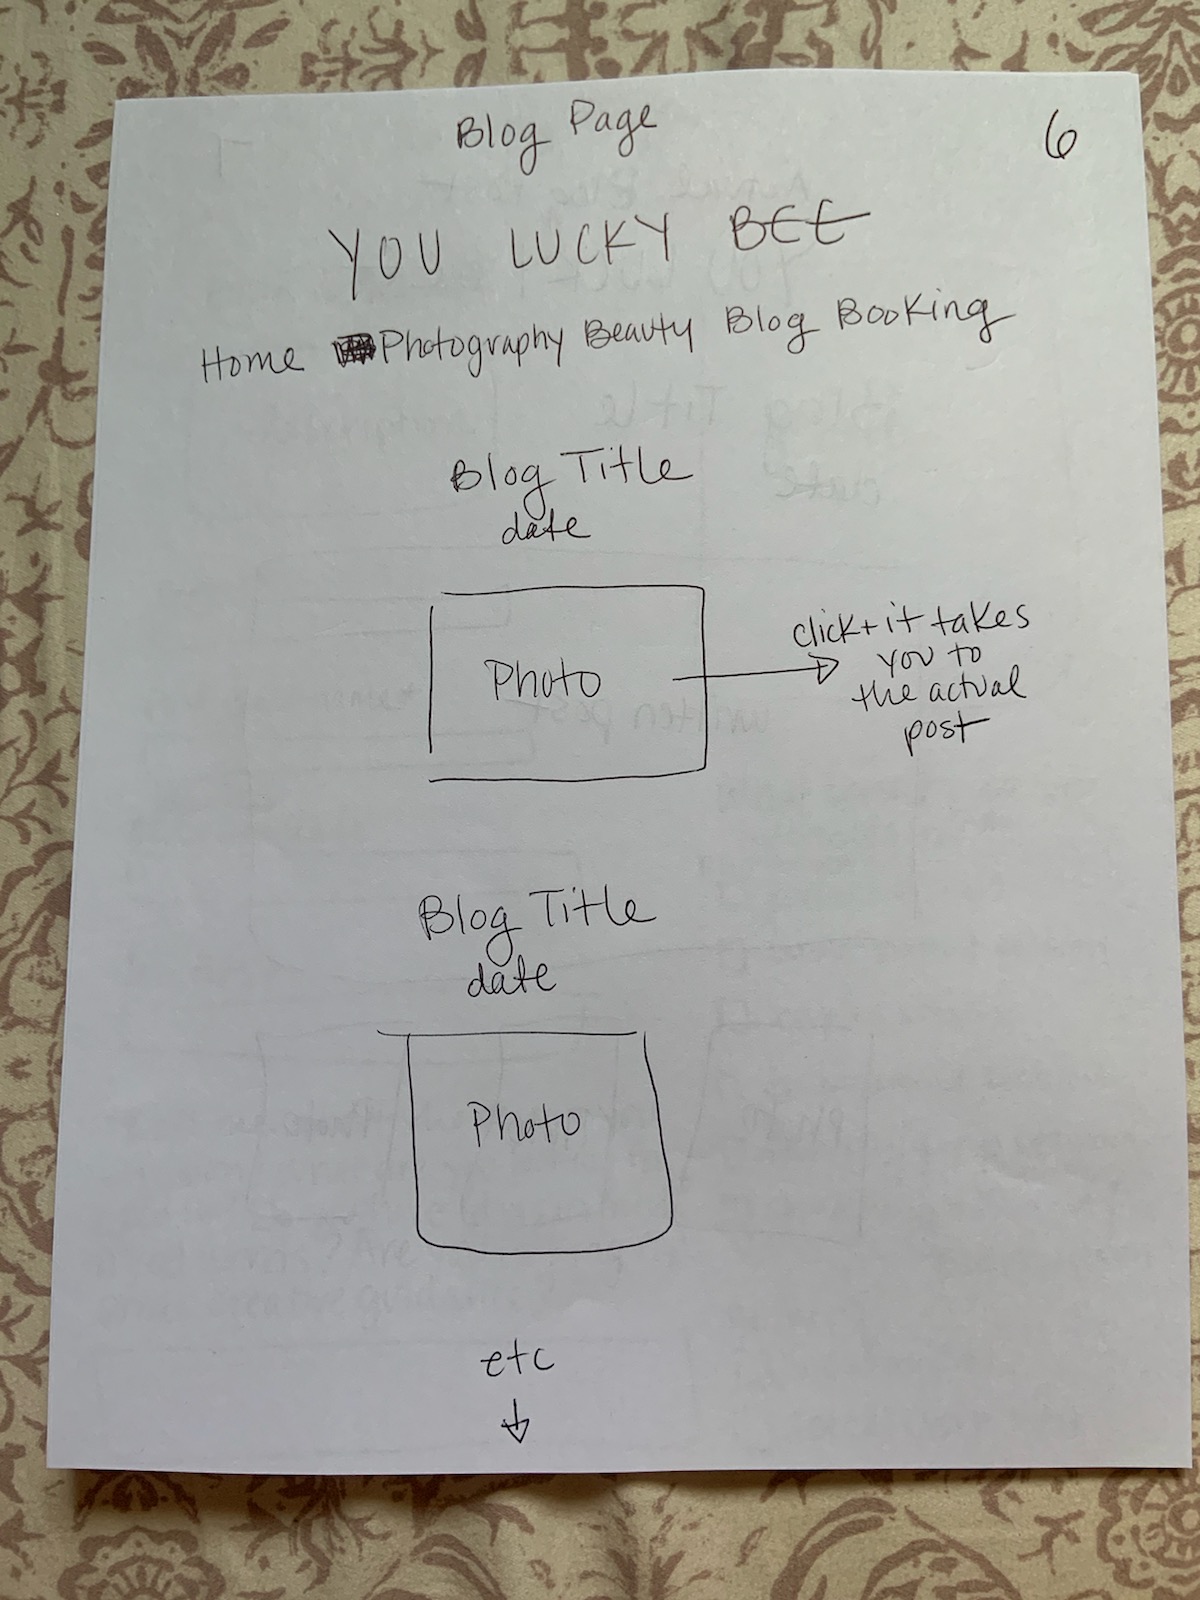 Blog Page
6
YOU LUCKY BEE
Home Photography Beauty Blog Booking
Blog Title
date
Photo
click + it takes
you to
the actual
post
Blog Title
date
Photo
etc